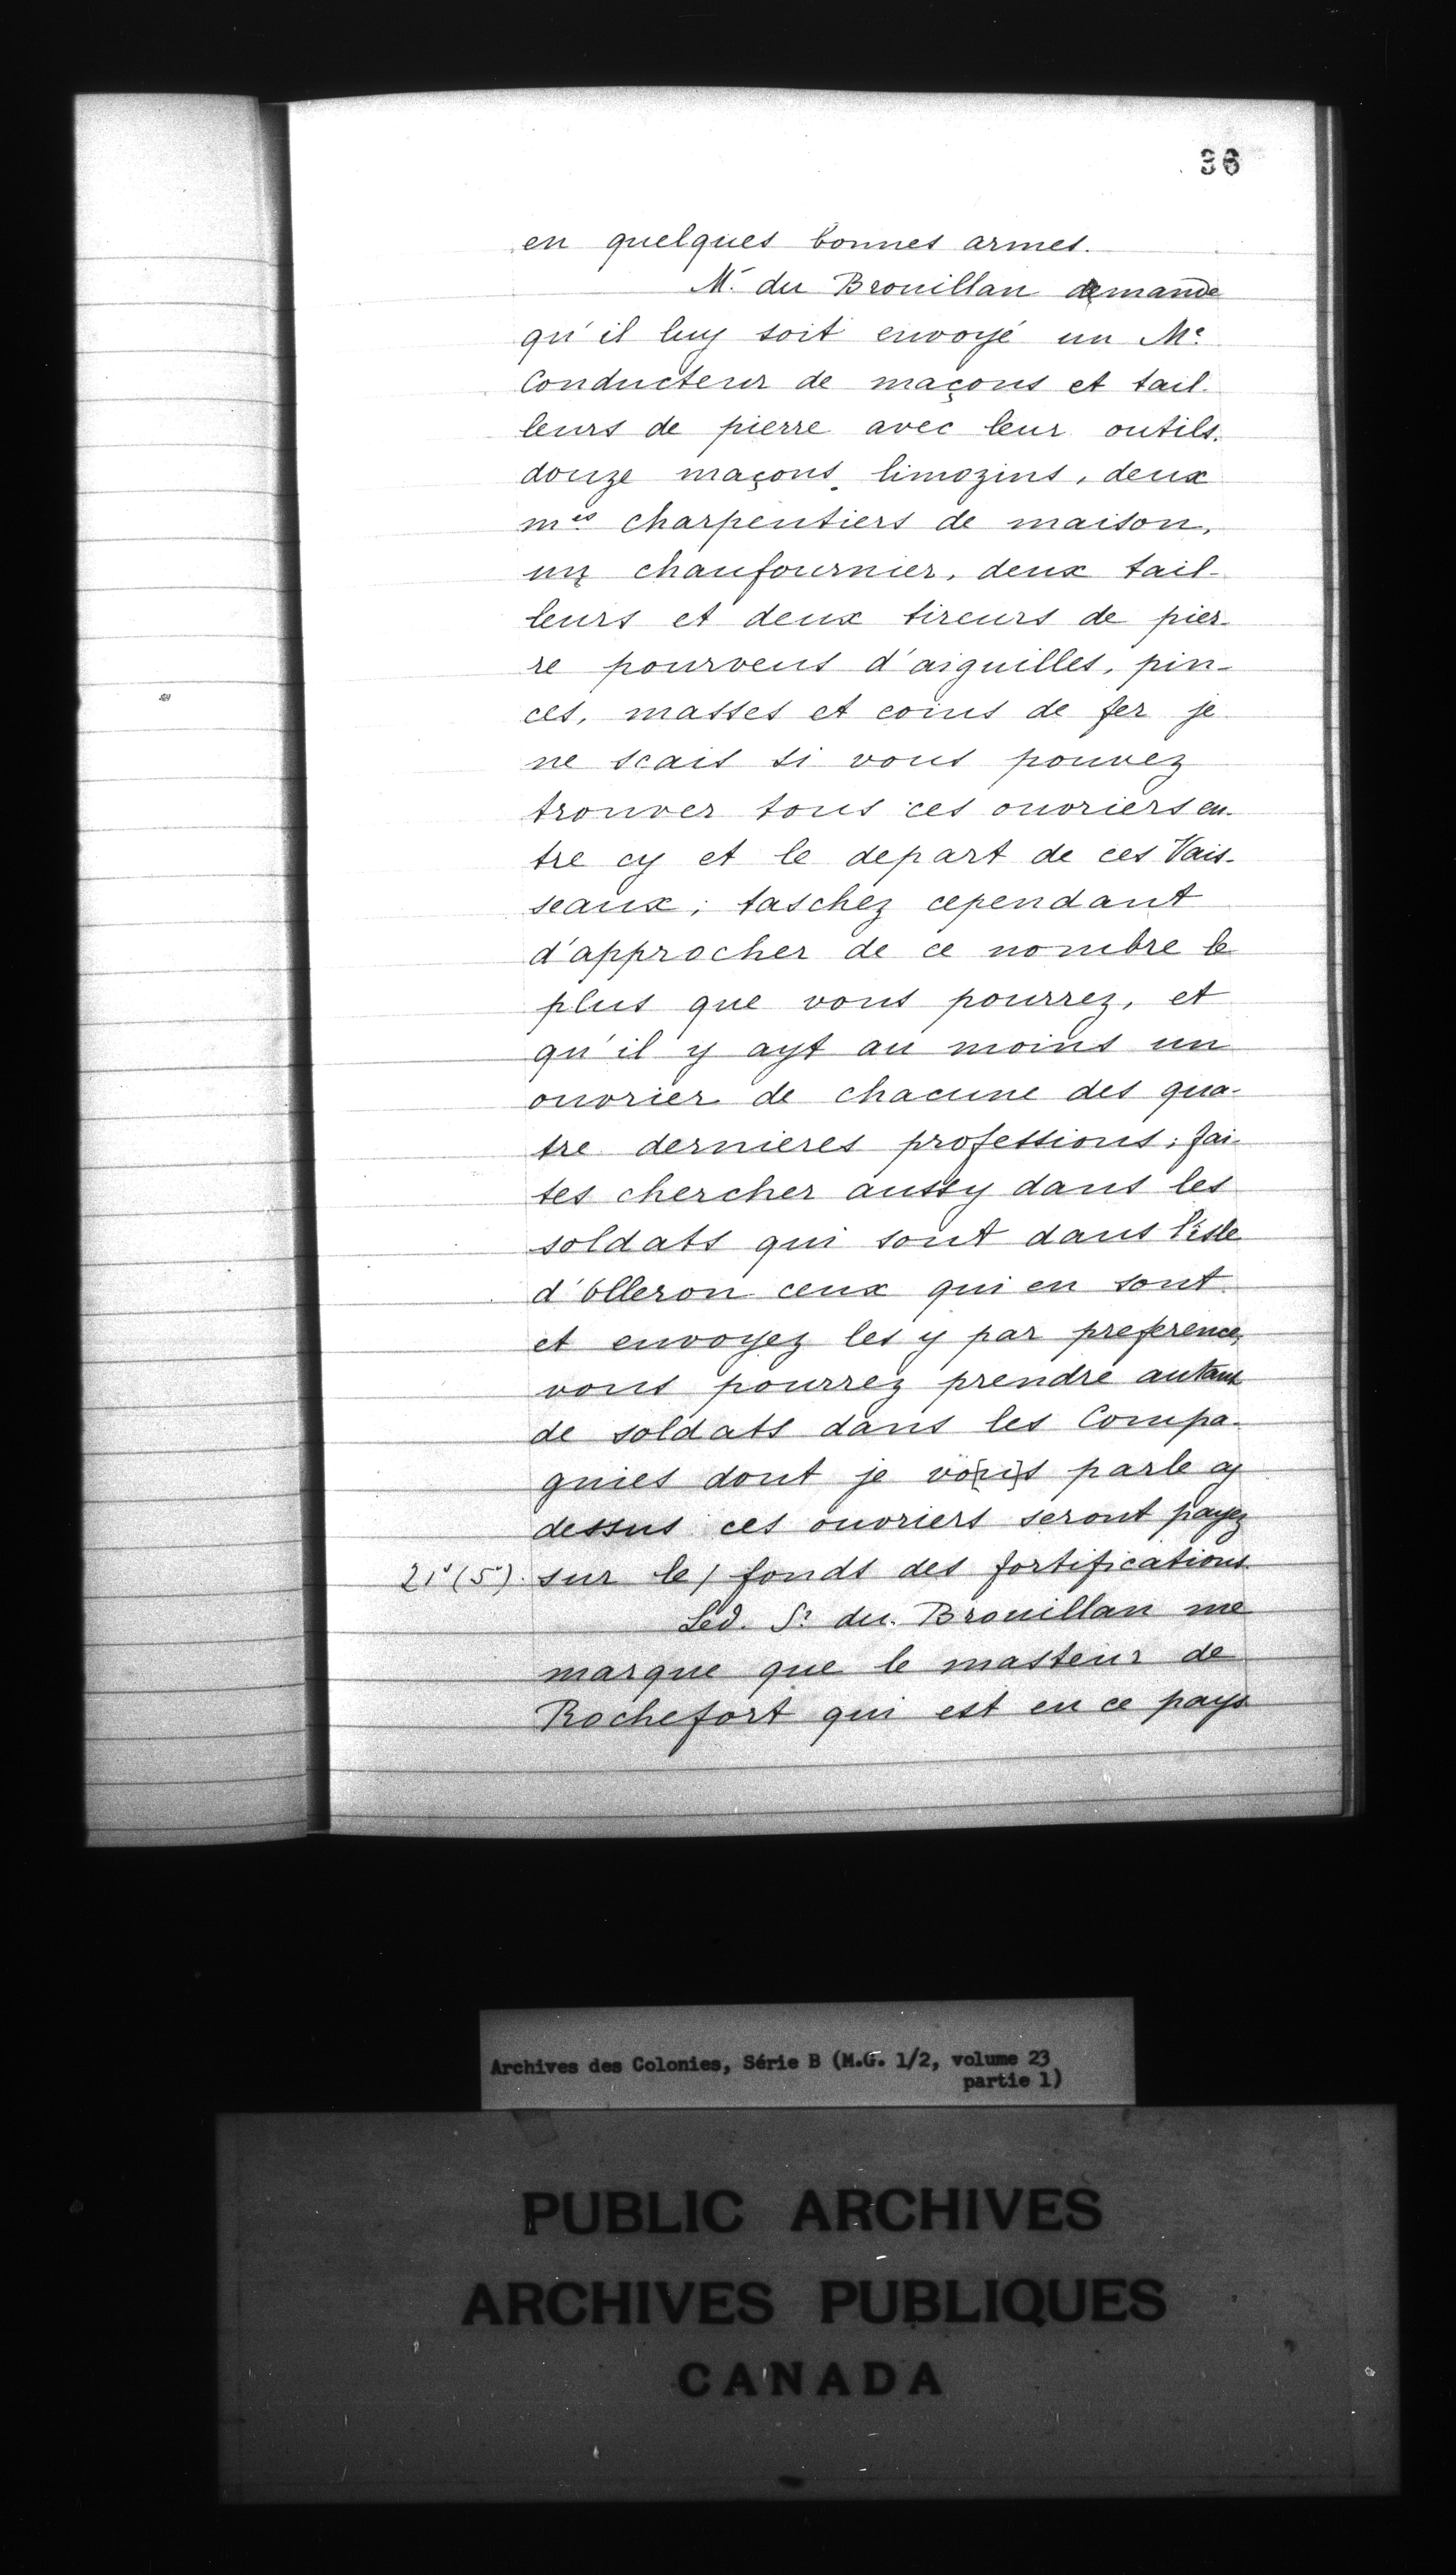 36
en quelques bonnes armes.
Mr du Brouillan demande
qu'il luy soit envoyé un Me
Conducteur de maçons et tail-
leurs de pierre avec leur outils.
douze maçons limozins, deux
mes charpentiers de maison,
un chaufournier, deux tail-
leurs et deux tireurs de pier-
re pourveus d'aiguilles, pin-
ces, masses et coins de fer je
ne scais si vous pouvez
trouver tous ces ouvriers en-
tre cy et le depart de ces Vais-
seaux; taschez cependant
d'approcher de ce nombre le
plus que vous pourrez, et
qu'il y ayt au moins un
ouvrier de chacune des qua-
tre dernieres professions; fai-
tes chercher aussy dans les
soldats qui sont dans l'isle
d'olleron ceux qui en sont
et envoyez les y par preference,
vous pourrez prendre autant
de soldats dans les Compa-
gnies dont je vo[u]s parle cy
dessus ces ouvriers seront payez
21 (5) sur le / fonds des fortifications
Led. Sr du Brouillan me
marque que le masteur de
Rochefort qui est en ce pays
Archives des Colonies, Série B (M.G. 1/2, volume 23
partie 1)
PUBLIC ARCHIVES
ARCHIVES PUBLIQUES
CANADA